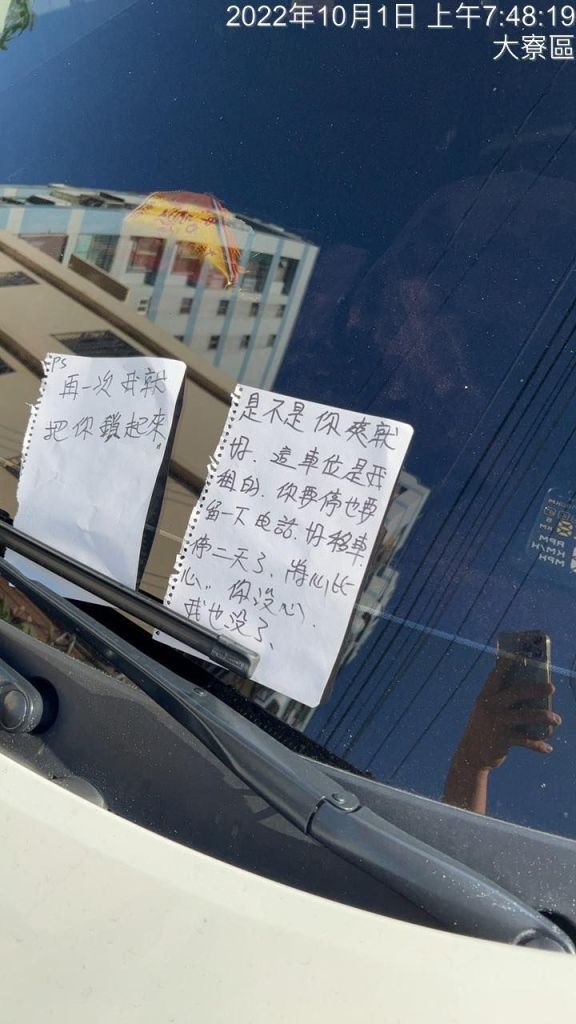 2022年10月1日 上午7:48:19
大寮區
PS
再一次我就
把你鎖起來。
是不是你爽就
好、這車位是我
租的、你要停也要
留一下电話、好移車、
停二天了、將心比
心、你沒心、
我也沒了、
RPM
KM/H
MPH